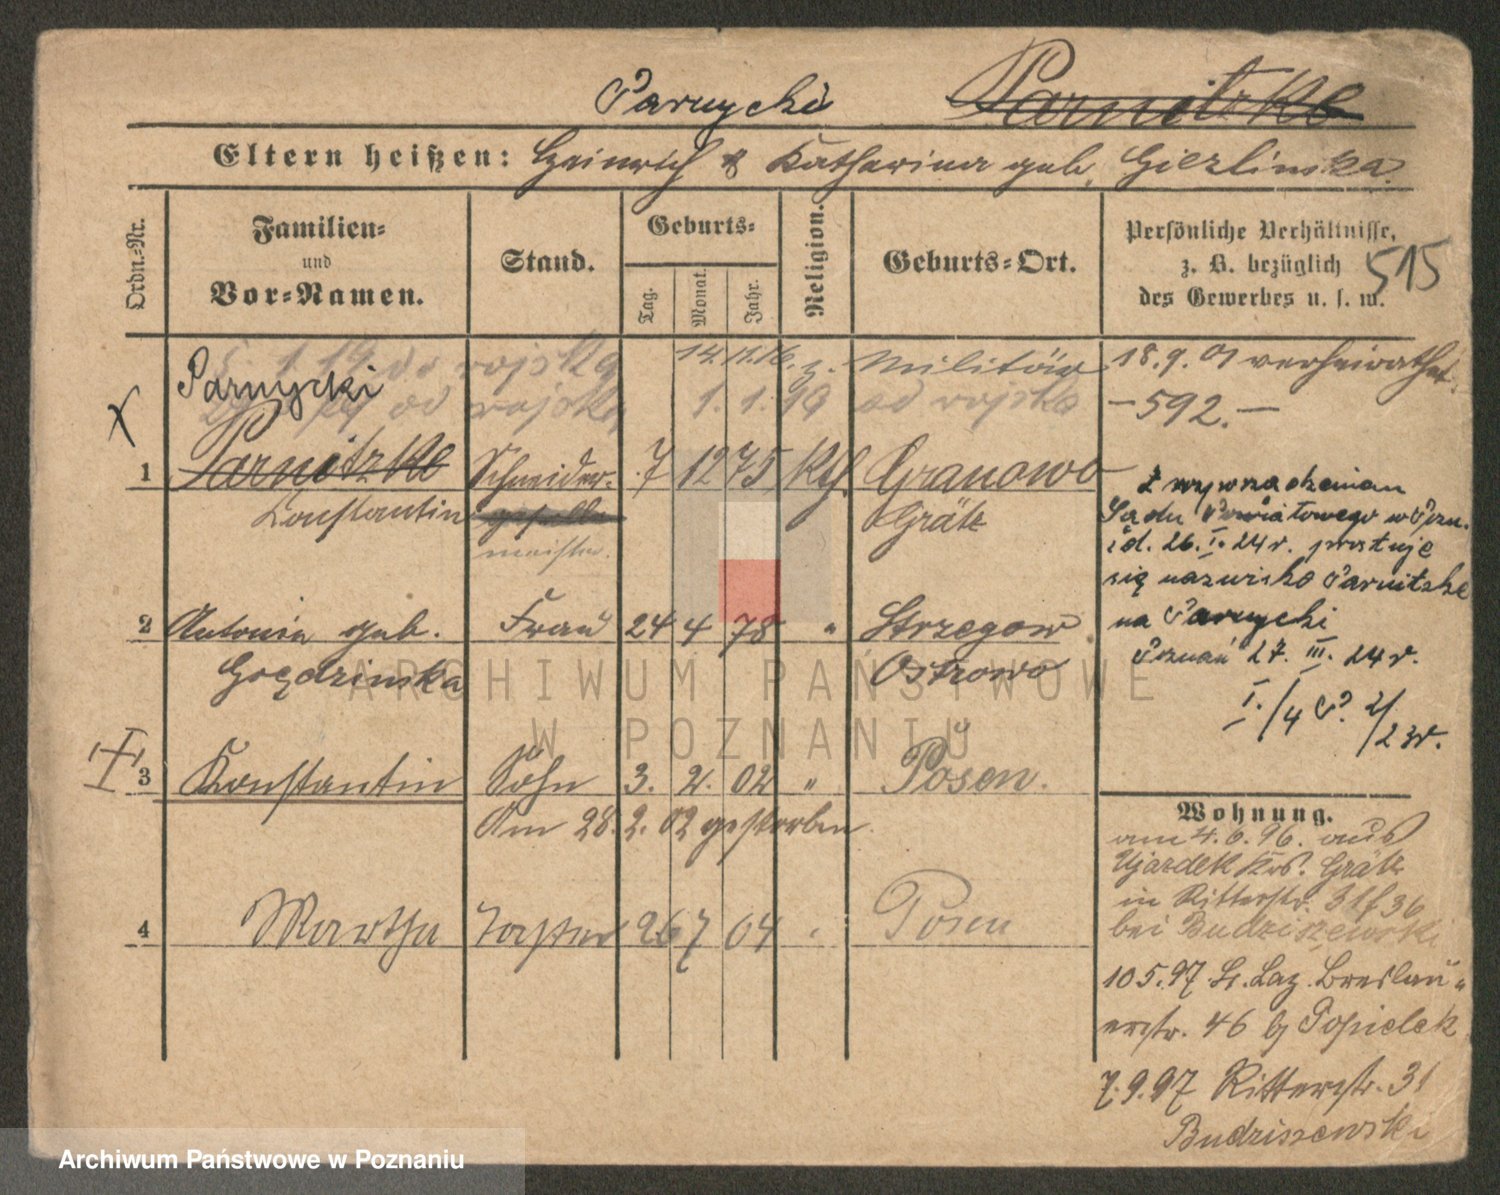 Parnycki Parnitzke
Eltern heißen: Heinrich & Katharina geb. Giezlinska.
Ordn.-Nr. Familien- und Vor-Namen. Stand. Geburts- Tag. Monat. Jahr. Religion. Geburts-Ort. Persönliche Verhältnisse, z. B. bezüglich des Gewerbes u. s. w. 515
5. 1. 19 do wojska 14.11.16. z. Militär 18.9.01 verheirathet
Parnycki od wojska 1.1.19 od wojska – 592. –
1 Parnitzke Schneider- 7 12 75 kth. Granowo
Konstantin geselle Grätz
meister.
2 Antonie geb. Frau 24 4 78 " Strzegow
Goędzinska Ostrowo
3 Konstantin Sohn 3. 2. 02 " Posen.
Am 28. 2. 02 gestorben.
4 Martha Tochter 26 7 04 " Posen
Sądu Powiatowego w Pozn.
i d. 26. I. 24 r. prostuje
się nazwisko Parnitzke
na Parnycki
Poznań 27. III. 24 r.
Wohnung.
am 4.6.96. aus
Ujazdek Krs. Grätz
in Ritterstr. 31/36
bei Budziszewski
10.5.97. St. Laz. Breslau-
erstr. 46 b/ Popielek
7.9.97 Ritterstr. 31
Budziszewski
ARCHIWUM PAŃSTWOWE
W POZNANIU
Archiwum Państwowe w Poznaniu